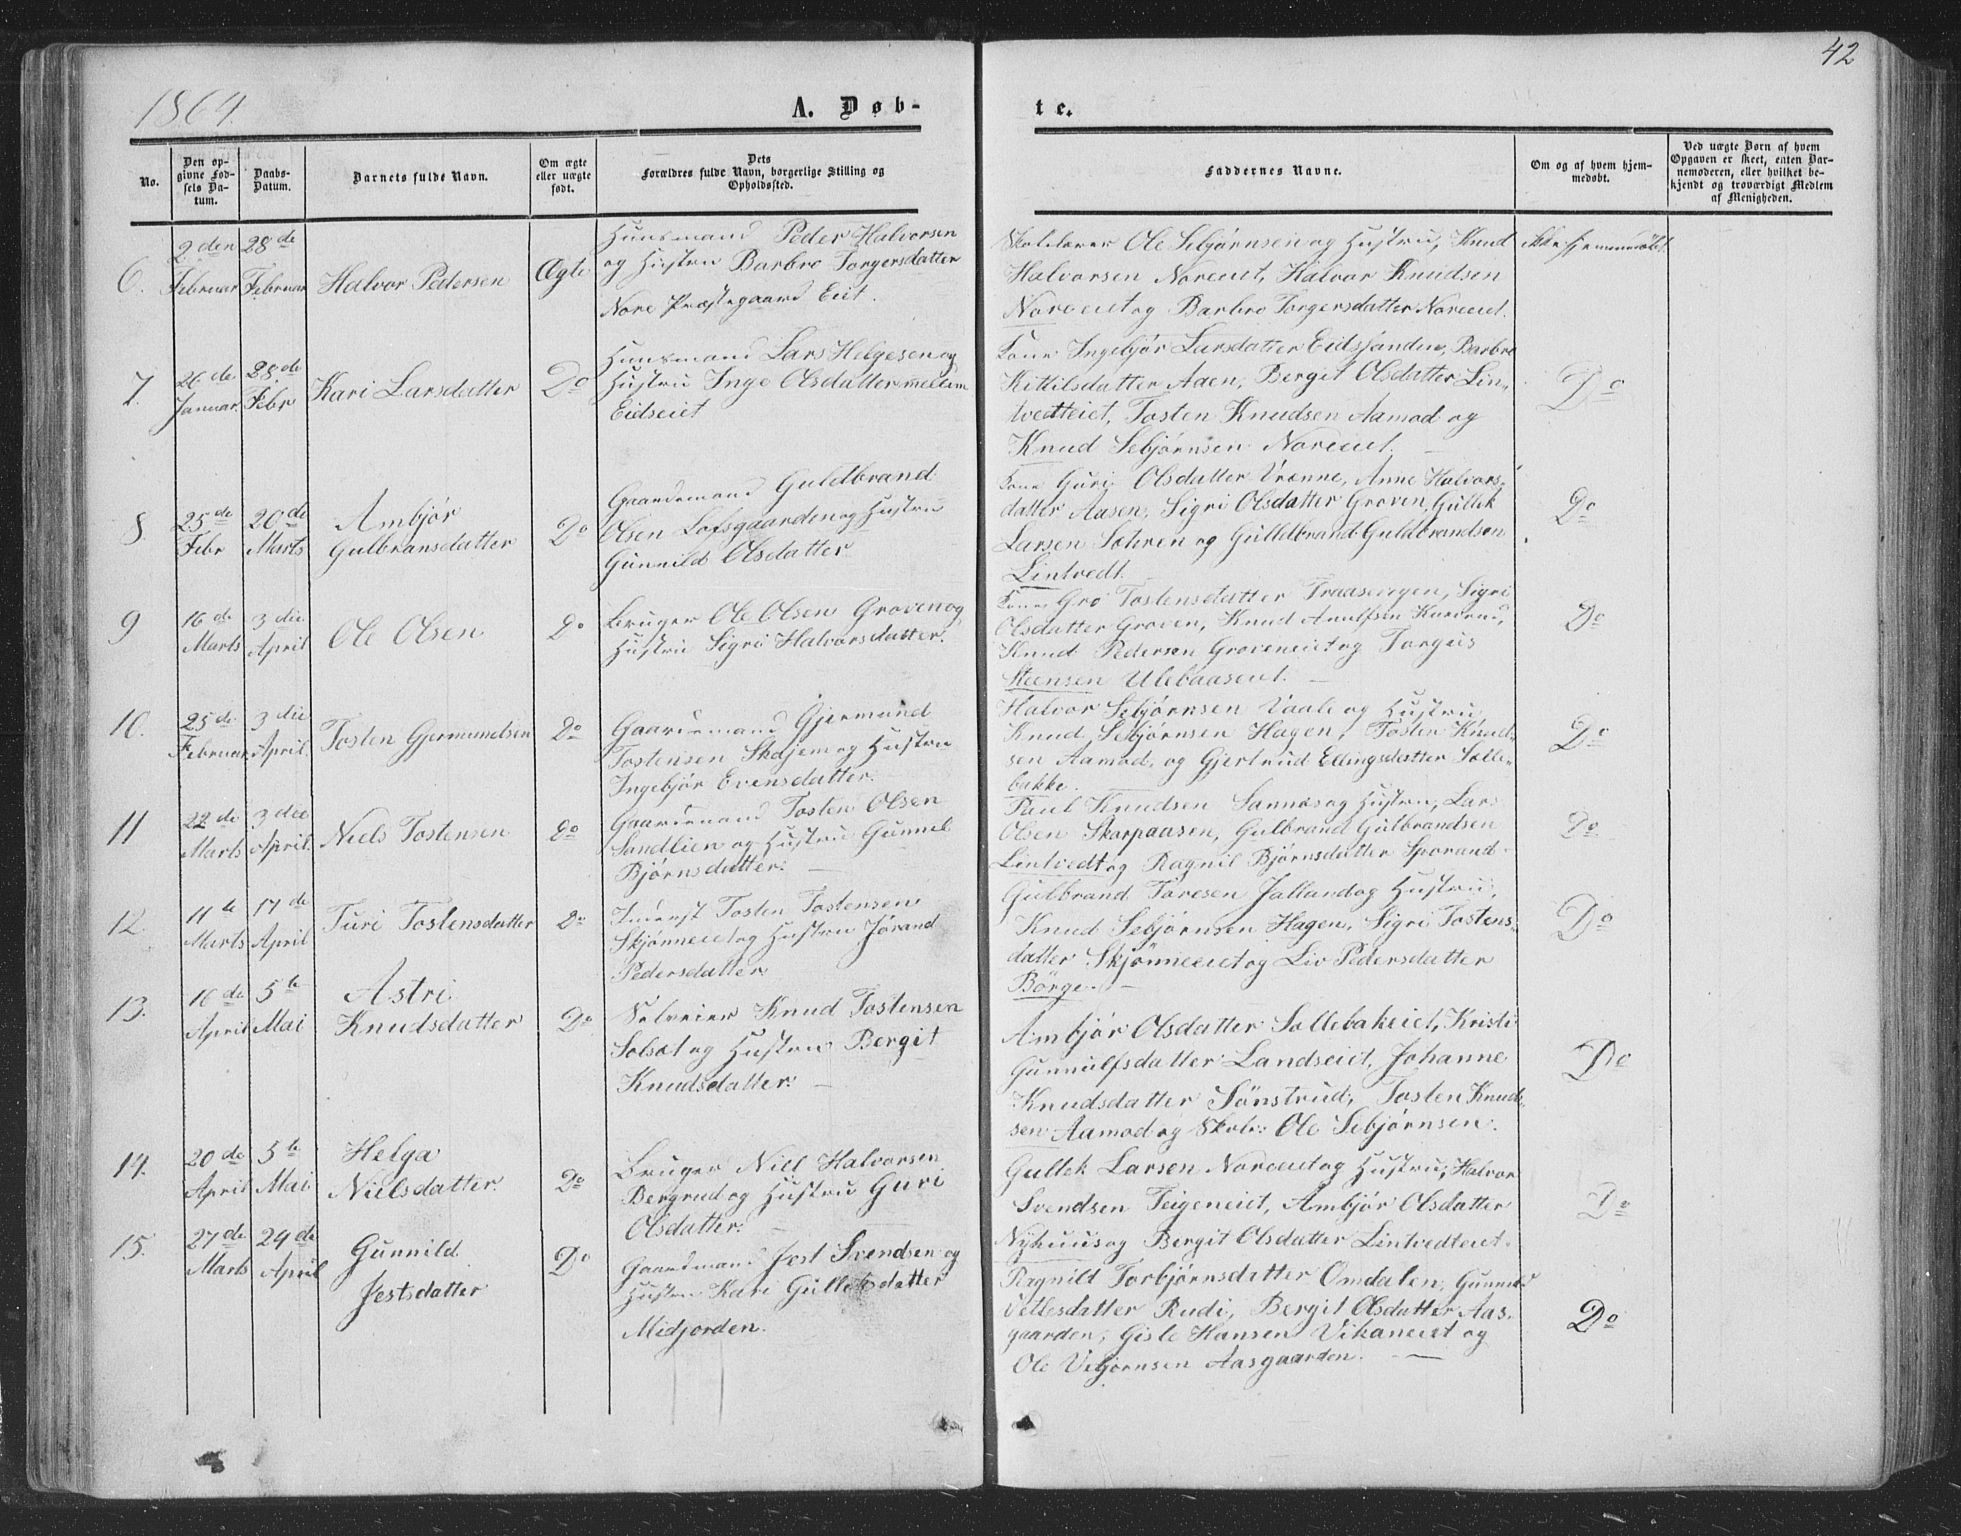 42
1864.
A. Døb-
te.
No.
Den op-
givne Fød-
sels Da-
tum.
Daabs-
Datum.
Barnets fulde Navn.
Om ægte
eller uægte
født.
Dets
Forældres fulde Navn, borgerlige Stilling og
Opholdssted.
Faddernes Navne.
Om og af hvem hjem-
medøbt.
Ved uægte Børn af hvem
Opgaven er skeet, enten Bar-
nemoderen, eller hvilket be-
kjendt og troværdigt Medlem
af Menigheden.
6.
2den
Februar
28de
Februar
Halvor Pedersen
Ægte
Huusmand Peder Halvorsen
og Hustru Barbro Torgersdatter
Nore Præstegaard Eiet.
Skolelærer Ole Sebjørnsen og Hustru, Knud
Halvorsen Noreeiet, Halvor Knudsen
Noreeiet og Barbro Torgersdatter Noreeiet.
ikke hjemmedøbt
7.
26de
Januar.
28de
Febr
Kari Larsdatter
Do
Huusmand Lars Helgesen og
Hustru Inge Olsdatter mellem
Eidseiet
Kone Ingebjør Larsdatter Eidsjanden, Barbro
Kittilsdatter Aaen, Bergit Olsdatter Lin-
tvedteiet, Tosten Knudsen Aamod og
Knud Sebjørnsen Noreeiet.
Do
8.
25de
Febr
20de
Marts
Ambjør
Gulbransdatter
Do
Gaardmand Guldbrand
Olsen Lofsgaarden og Hustru
Gunnild Olsdatter
Kone Guri Olsdatter Vrenne, Anne Halvors-
datter Aasen, Sigri Olsdatter Groven, Gullek
Larsen Søhren og Gulldbrand Guldbrandsen
Lintvedt.
Do
9
16de
Marts
3die
April
Ole Olsen
Do
Bruger Ole Olsen Groven og
Hustru Sigri Halvorsdatter.
Kone Gro Tostensdatter Fraasvigen, Sigri
Olsdatter Groven, Knud Anulfsen
Knud Pedersen Groveneiet og Torgus
Steensen Ulebaaseiet.
Do
10.
25de
Februar
3die
April.
Tosten Gjermundsen
Do
Gaardmand Gjermund
Tostensen Skajem og Hustru
Ingebjør Evensdatter.
Halvor Sebjørnsen Vaale og Hustru
Knud Sebjørnsen Hagen, Tosten Knud-
sen Aamod, og Gjertrud Ellingsdatter Solle-
bakke.
Do
11
22de
Marts
3die
April.
Niels Tostensen
Do
Gaardmand Tosten Olsen
Sandlien og Hustru Gunnil
Bjørnsdatter.
Paul Knudsen Sannes og Hustru, Lars
Olsen Skarpaasen, Gulbrand Gulbrandsen
Lintvedt og Ragnil Bjørnsdatter Sporand
Do
12.
11te
Marts
17de
April
Turi Tostensdatter
Do
Inderst Tosten Tostensen
Skjønneeiet og Hustru Jørand
Pedersdatter
Gulbrand Toresen Jalland og Hustru,
Knud Sebjørnsen Hagen, Sigri Tostens-
datter Skjønneeiet og Liv Pedersdatter
Börge.
Do
13.
16de
April
5te
Mai
Astri
Knudsdatter
Do
Selveier Knud Tostensen
Solsæt og Hustru Bergit
Knudsdatter.
Ambjør Olsdatter Sollebakeiet, Kristi
Gunnulfsdatter Landseiet, Johanne
Knudsdatter Sönstrud, Tosten Knud-
sen Aamod og Skolr: Ole Sebjørnsen.
Do
14.
20de
April
5te
Mai
Helga
Nielsdatter.
Do
Bruger Niel Halvorsen
Bergrud og Hustru Guri
Olsdatter.
Gullek Larsen Noreeiet og Hustru, Halvor
Svendsen Teigeneiet, Ambjør Olsdatter
Nyhuus og Bergit Olsdatter Lintvedteiet.
Do
15.
27de
Marts
24de
April
Gunnild
Jestsdatter
Do
Gaardmand Jest Svendsen og
Hustru Kari Gulleksdatter
Midjorden.
Ragnilt Torbjørnsdatter Omdalen, Gunnild
Vetlesdatter Rudi, Bergit Olsdatter Aas-
gaarden, Gisle Hansen Vikaneiet og
Ole Vebjørnsen Aasgaarden.
Do